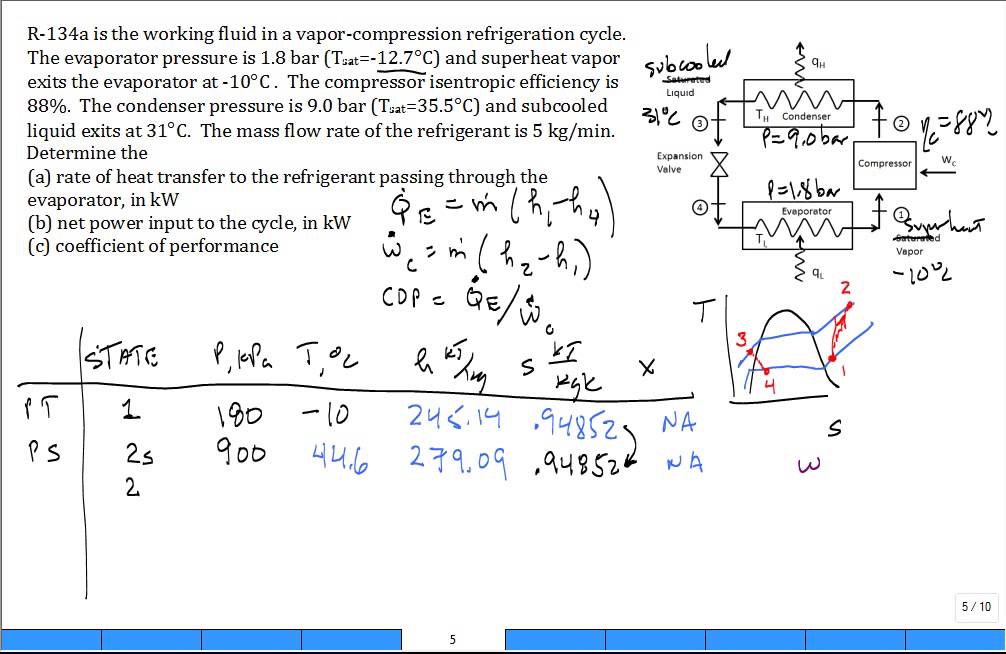 R-134a is the working fluid in a vapor-compression refrigeration cycle.
The evaporator pressure is 1.8 bar (Tsat=-12.7°C) and superheat vapor
exits the evaporator at -10°C . The compressor isentropic efficiency is
88%. The condenser pressure is 9.0 bar (Tsat=35.5°C) and subcooled
liquid exits at 31°C. The mass flow rate of the refrigerant is 5 kg/min.
Determine the
(a) rate of heat transfer to the refrigerant passing through the
evaporator, in kW
(b) net power input to the cycle, in kW
(c) coefficient of performance
Q̇E = ṁ (h1-h4)
Ẇc = ṁ (h2-h1)
COP = Q̇E/Ẇc
subcooled
Saturated
Liquid
31°C
qH
TH Condenser
P=9.0bar
3
2
ηc=88%
Expansion
Valve
Compressor
Wc
P=1.8bar
Evaporator
TL
4
1
superheat
Saturated
Vapor
-10°C
qL
T
2
3
4
1
s
STATE P, kPa T, °C h kJ/kg s kJ/kgK x
PT 1 180 -10 245.14 .94852 NA
PS 2s 900 44.6 279.09 .94852 NA
2
w
5 / 10
5